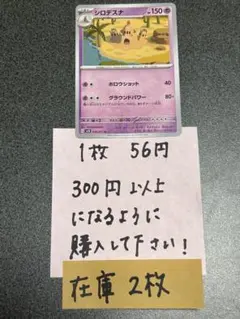 シロデスナ 150
ホロウショット 40
グラウンドパワー 80
1枚 56円
300円以上
になるように
購入して下さい!
在庫 2枚